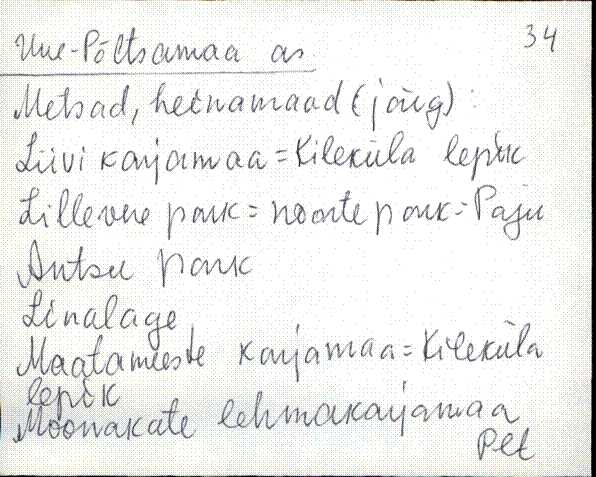 34
Uue-Põltsamaa as.
Metsad, heinamaad (jäug) :
Liivi karjamaa = Kileküla lepik
Lillevere park = noorte park = Paju
Antsu park
Linalage
Maatameeste karjamaa = Kileküla
lepik
Moonakate lehmakarjamaa
Plt